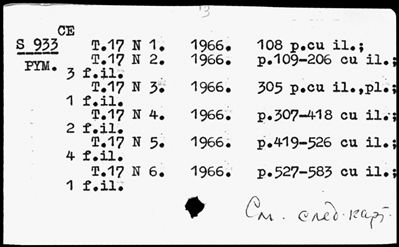 13
CE
S 933 T.17 N 1. 1966. 108 p.cu il.;
РУМ. T.17 N 2. 1966. p.109-206 cu il.;
3 f.il.
T.17 N 3. 1966. 305 p.cu il.,pl.;
1 f.il.
T.17 N 4. 1966. p.307-418 cu il.;
2 f.il.
T.17 N 5. 1966. p.419-526 cu il.;
4 f.il.
T.17 N 6. 1966. p.527-583 cu il.;
1 f.il.
См. след. карт.